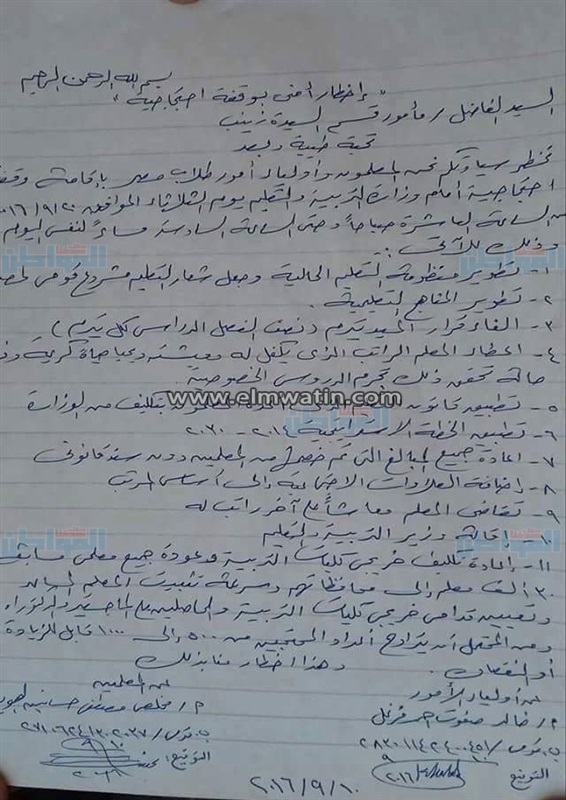 بسم الله الرحمن الرحيم
"إخطار أمنى بوقفة احتجاجية"
السيد الفاضل / مأمور قسم السيدة زينب
تحية طيبة وبعد
نخطر سيادتكم نحن المعلمون وأولياء أمور طلاب مصر بإقامة وقفة
احتجاجية أمام وزارة التربية والتعليم يوم الثلاثاء الموافق ٢٠١٦/٩/٢٠
من الساعة العاشرة صباحاً وحتى الساعة السادسة مساءً لنفس اليوم
وذلك للآتى :
١- تطوير منظومة التعليم الحالية وجعل شعار التعليم مشروع قومى لمصر
٢- تطوير المناهج التعليمية .
٣- الغاء قرار الميدتيرم ( نصف الفصل الدراسى كل تيرم )
٤- اعطاء المعلم الراتب الذى يكفل له معيشته ويحيا حياة كريمة وفى
حالة تحقق ذلك تجرم الدروس الخصوصية
www.elmwatin.com
٥- تطبيق قانون بتكليف من الوزارة
٦- تطبيق الخطة الاستراتيجية ٢٠١٤ - ٢٠٣٠
٧- اعادة جميع المبالغ التى تم خصمها من المعلمين دون سند قانونى
٨- إضافة العلاوات الاجتماعية إلى أساسى المرتب
٩- تقاضى المعلم معاشاً على آخر راتب له
١٠- إقالة وزير التربية والتعليم
١١- إعادة تكليف خريجى كليات التربية وعودة جميع معلمى مسابقة
٣٠ ألف معلم إلى محافظاتهم وسرعة تثبيت المعلم المساعد
وتعيين قدامى خريجى كليات التربية والحاصلين على الماجستير والدكتوراه
ومن المحتمل أن يتراوح أعداد المحتجين من ٥٠٠ إلى ١٠٠٠ قابل للزيادة
أو النقصان . وهذا اخطار منا بذلك
عن أولياء الأمور
عن المعلمين
م / خالد صفوت
م / مخلص مصطفى
ب قومى /
ب قومى /
التوقيع
التوقيع :
٢٠١٦/٩/١٠